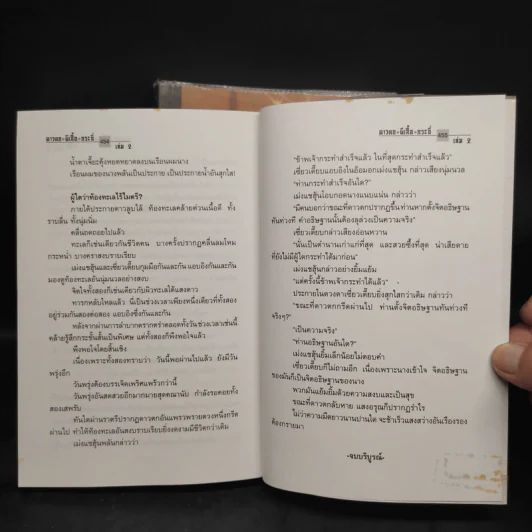 ดาวตก-ผีเสื้อ-กระบี่ 454 เล่ม 2
น้ำตาเจื้อะคุ้งหยดหยาดลงบนเรือนผมนาง
เรือนผมของนางพลันเป็นประกาย เป็นประกายน้ำอันสุกใส!
ผู้ใดว่าท้องทะเลไร้ไมตรี?
ภายใต้ประกายดาวลูบไล้ ท้องทะเลคล้ายด่วนเนื้อดี ทั้ง
ราบลื่น ทั้งนุ่มนิ่ม
คลื่นถดถอยไปแล้ว
ทะเลก็เช่นเดียวกับชีวิตคน บางครั้งปรากฏคลื่นลมโหม
กระหน่ำ บางคราสงบราบเรียบ
เม่งแชฮุ้นและเซี่ยวเตี๊ยบกุมมือกันและกัน แอบอิงกันและกัน
มองดูท้องทะเลอันนุ่มนวลอย่างสงบ
จิตใจทั้งสองก็เช่นเดียวกับผิวทะเลใต้แสงดาว
ทารกหลับใหลแล้ว นี่เป็นช่วงเวลาเพียงหนึ่งเดียวที่ทั้งสอง
อยู่ร่วมกันสองต่อสอง แอบอิงซึ่งกันและกัน
หลังจากผ่านการลำบากตรากตรำตลอดทั้งวันช่วงเวลาเช่นนี้
คล้ายรู้สึกกระชั้นสั้นเป็นพิเศษ แต่ทั้งสองก็พึงพอใจแล้ว
พึงพอใจโดยสิ้นเชิง
เนื่องเพราะทั้งสองทราบว่า วันนี้พอผ่านไปแล้ว ยังมีวัน
พรุ่งอีก
วันพรุ่งต้องบรรเจิดเพริศแพร้วกว่านี้
วันพรุ่งอันสดสวยอีกมากมายสุดคณานับ กำลังรอคอยทั้ง
สองเสพรับ
ทันใดม่านราตรีปรากฏดาวตกอันแพรวพรายดวงหนึ่งกรีด
ผ่านไป ทำให้ท้องทะเลอันสงบราบเรียบยิ่งงดงามมีชีวิตกว่าเดิม
เม่งแชฮุ้นพลันกล่าวว่า
ดาวตก-ผีเสื้อ-กระบี่ 455 เล่ม 2
"ข้าพเจ้ากระทำสำเร็จแล้ว ในที่สุดกระทำสำเร็จแล้ว"
เซี่ยวเตี๊ยบแอบอิงในอ้อมอกเม่งแชฮุ้น กล่าวเสียงนุ่มนวล
"ท่านกระทำสำเร็จอันใด?"
เม่งแชฮุ้นโอบกอดนางแนบแน่น กล่าวว่า
"มีคนบอกว่าขณะที่ดาวตกปรากฏขึ้นท่านหากตั้งจิตอธิษฐาน
ทันท่วงที คำอธิษฐานนั้นต้องลุล่วงเป็นความจริง"
เซี่ยวเตี๊ยบกล่าวเสียงอ่อนหวาน
"นั่นเป็นตำนานเก่าแก่ที่สุด และสวยซึ้งที่สุด น่าเสียดาย
ที่ยังไม่มีผู้ใดกระทำได้มาก่อน"
เม่งแชฮุ้นกล่าวอย่างยิ้มแย้ม
"แต่ครั้งนี้ข้าพเจ้ากระทำได้แล้ว"
ประกายในดวงตาเซี่ยวเตี๊ยบยิ่งสุกใสกว่าเดิม กล่าวว่า
"ขณะที่ดาวตกกรีดผ่านไป ท่านตั้งจิตอธิษฐานทันท่วงที
จริงๆ?"
"เป็นความจริง"
"ท่านอธิษฐานอันใด?"
เม่งแชฮุ้นยิ้มเล็กน้อยไม่ตอบคำ
เซี่ยวเตี๊ยบก็ไม่ถามอีก เนื่องเพราะนางเข้าใจ จิตอธิษฐาน
ของมันก็เป็นจิตอธิษฐานของนาง
พวกมันแย้มยิ้มด้วยความสงบและเป็นสุข
ขณะที่ดาวตกลับหาย แสงอรุณก็ปรากฏรำไร
ไม่ว่าความมืดยาวนานปานใด จะช้าเร็วแสงสว่างอันเรืองรอง
ต้องกรายมา
-จบบริบูรณ์-